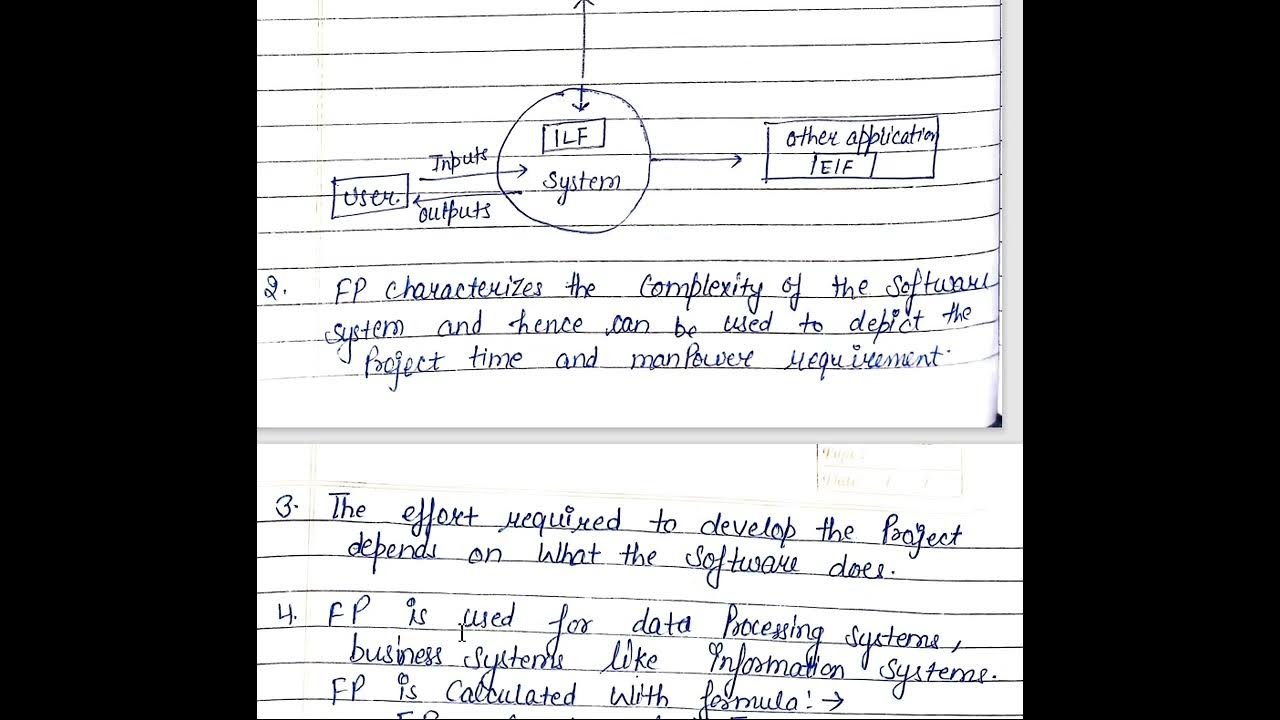 ILF
other application
Inputs
EIF
System
User.
outputs
2. FP characterizes the Complexity of the Software
system and hence can be used to depict the
Project time and manPower requirement.
3. The effort required to develop the Project
depends on What the software does.
4. FP is used for data Processing systems,
business systems like Information systems.
FP is Calculated With formula:→